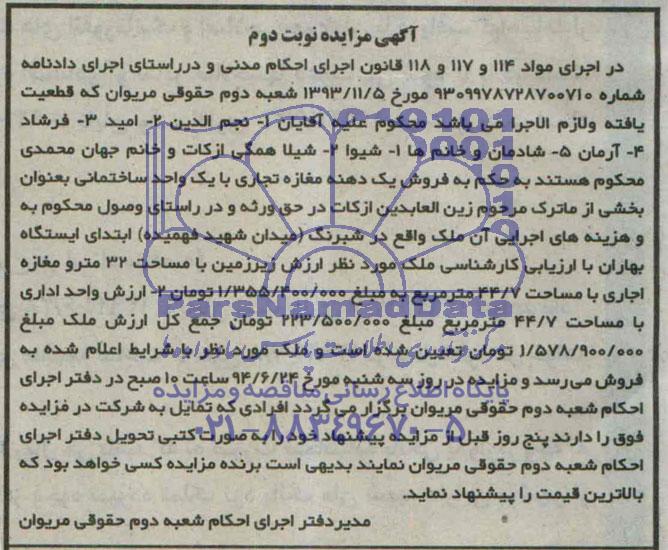 آگهی مزایده نوبت دوم
در اجرای مواد ۱۱۴ و ۱۱۷ و ۱۱۸ قانون اجرای احکام مدنی و درراستای اجرای دادنامه
شماره ۹۳۰۹۹۷۸۷۲۸۷۰۰۷۱۰ مورخ ۱۳۹۳/۱۱/۵ شعبه دوم حقوقی مریوان که قطعیت
یافته ولازم الاجرا می باشد محکوم علیه آقایان ۱- نجم الدین ۲- امید ۳- فرشاد
۴- آرمان ۵- شادمان و خانم ها ۱- شیوا ۲- شیلا همگی ازکات و خانم جهان محمدی
محکوم هستند به حکم به فروش یک دهنه مغازه تجاری با یک واحد ساختمانی بعنوان
بخشی از ماترک مرحوم زین العابدین ازکات در حق ورثه و در راستای وصول محکوم به
و هزینه های اجرایی آن ملک واقع در شبرنگ (میدان شهید فهمیده) ابتدای ایستگاه
بهاران با ارزیابی کارشناسی ملک مورد نظر ارزش زیرزمین با مساحت ۳۲ مترو مغازه
اجاری با مساحت ۴۴/۷ مترمربع به مبلغ ۱/۳۵۵/۴۰۰/۰۰۰ تومان ۲- ارزش واحد اداری
با مساحت ۴۴/۷ مترمربع مبلغ ۲۲۳/۵۰۰/۰۰۰ تومان جمع کل ارزش ملک مبلغ
۱/۵۷۸/۹۰۰/۰۰۰ تومان تعیین شده است و ملک مورد نظر با شرایط اعلام شده به
فروش می رسد و مزایده در روز سه شنبه مورخ ۹۴/۶/۲۴ ساعت ۱۰ صبح در دفتر اجرای
احکام شعبه دوم حقوقی مریوان برگزار می گردد افرادی که تمایل به شرکت در مزایده
فوق را دارند پنج روز قبل از مزایده پیشنهاد خود را به صورت کتبی تحویل دفتر اجرای
احکام شعبه دوم حقوقی مریوان نمایند بدیهی است برنده مزایده کسی خواهد بود که
بالاترین قیمت را پیشنهاد نماید.
مدیردفتر اجرای احکام شعبه دوم حقوقی مریوان
ParsNamadData
پایگاه اطلاع رسانی مناقصه و مزایده
۰۲۱-۸۸۳۴۹۶۷۰-۵